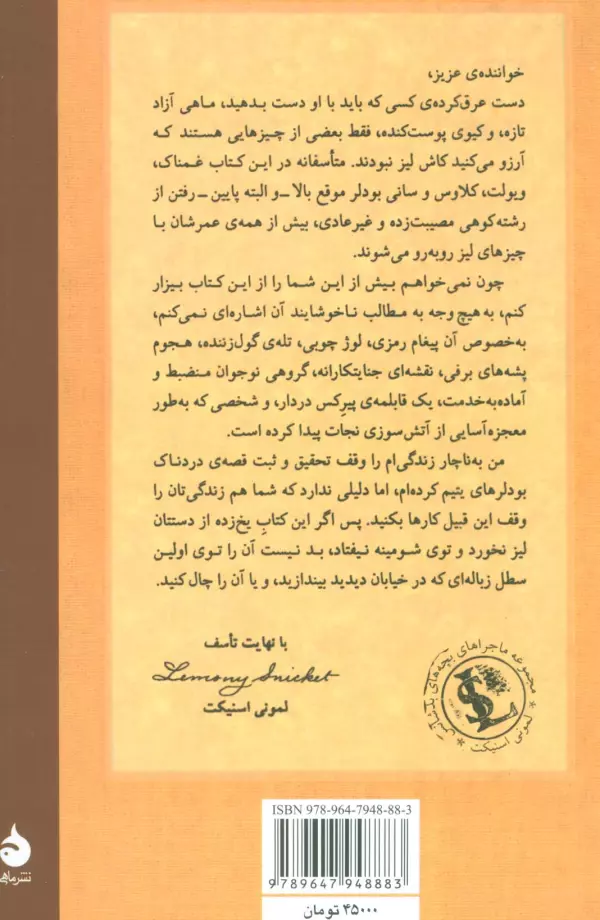 خواننده‌ی عزیز،
دست عرق‌کرده‌ی کسی که باید با او دست بدهید، ماهی آزاد
تازه، و کیوی پوست‌کنده، فقط بعضی از چیزهایی هستند که
آرزو می‌کنید کاش لیز نبودند. متأسفانه در این کتاب غمناک،
ویولت، کلاوس و سانی بودلر موقع بالا ـ و البته پایین ـ رفتن از
رشته‌کوهی مصیبت‌زده و غیرعادی، بیش از همه‌ی عمرشان با
چیزهای لیز روبه‌رو می‌شوند.
چون نمی‌خواهم بیش از این شما را از این کتاب بیزار
کنم، به هیچ وجه به مطالب ناخوشایند آن اشاره‌ای نمی‌کنم،
به‌خصوص آن پیغام رمزی، لوژ چوبی، تله‌ی گول‌زننده، هجوم
پشه‌های برفی، نقشه‌ای جنایتکارانه، گروهی نوجوان منضبط و
آماده‌به‌خدمت، یک قابلمه‌ی پیرِکس دردار، و شخصی که به‌طور
معجزه‌آسایی از آتش‌سوزی نجات پیدا کرده است.
من به‌ناچار زندگی‌ام را وقف تحقیق و ثبت قصه‌ی دردناک
بودلرهای یتیم کرده‌ام، اما دلیلی ندارد که شما هم زندگی‌تان را
وقف این قبیل کارها بکنید. پس اگر این کتابِ یخ‌زده از دستتان
لیز نخورد و توی شومینه نیفتاد، بد نیست آن را توی اولین
سطل زباله‌ای که در خیابان دیدید بیندازید، و یا آن را چال کنید.
با نهایت تأسف
Lemony Snicket
لمونی اسنیکت
مجموعه ماجراهای بچه‌های بدشانس
* لمونی اسنیکت *
ISBN 978-964-7948-88-3
9 789647 948883
۴۵۰۰۰ تومان
نشر ماهی